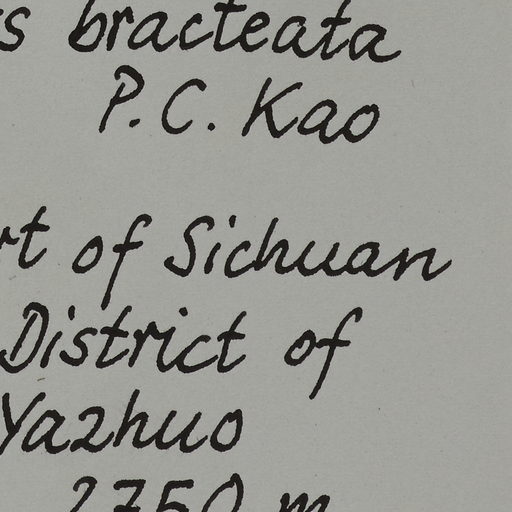 s bracteata
P. C. Kao
rt of Sichuan
District of
Yazhuo
2750 m